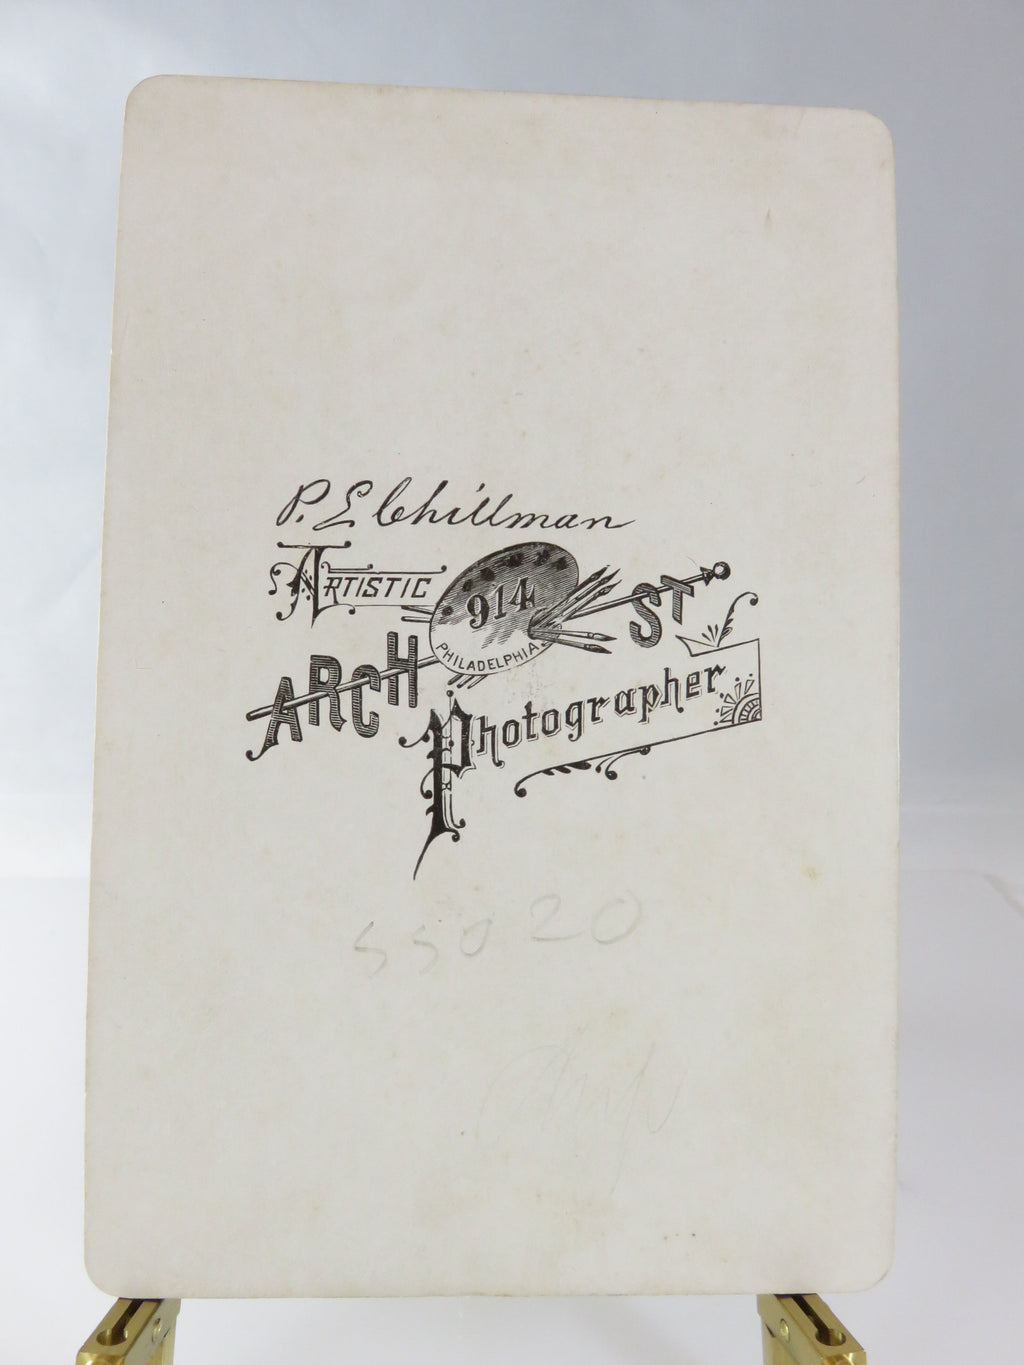 P. E. Chillman
ARTISTIC
914
PHILADELPHIA
ARCH ST
Photographer
55020